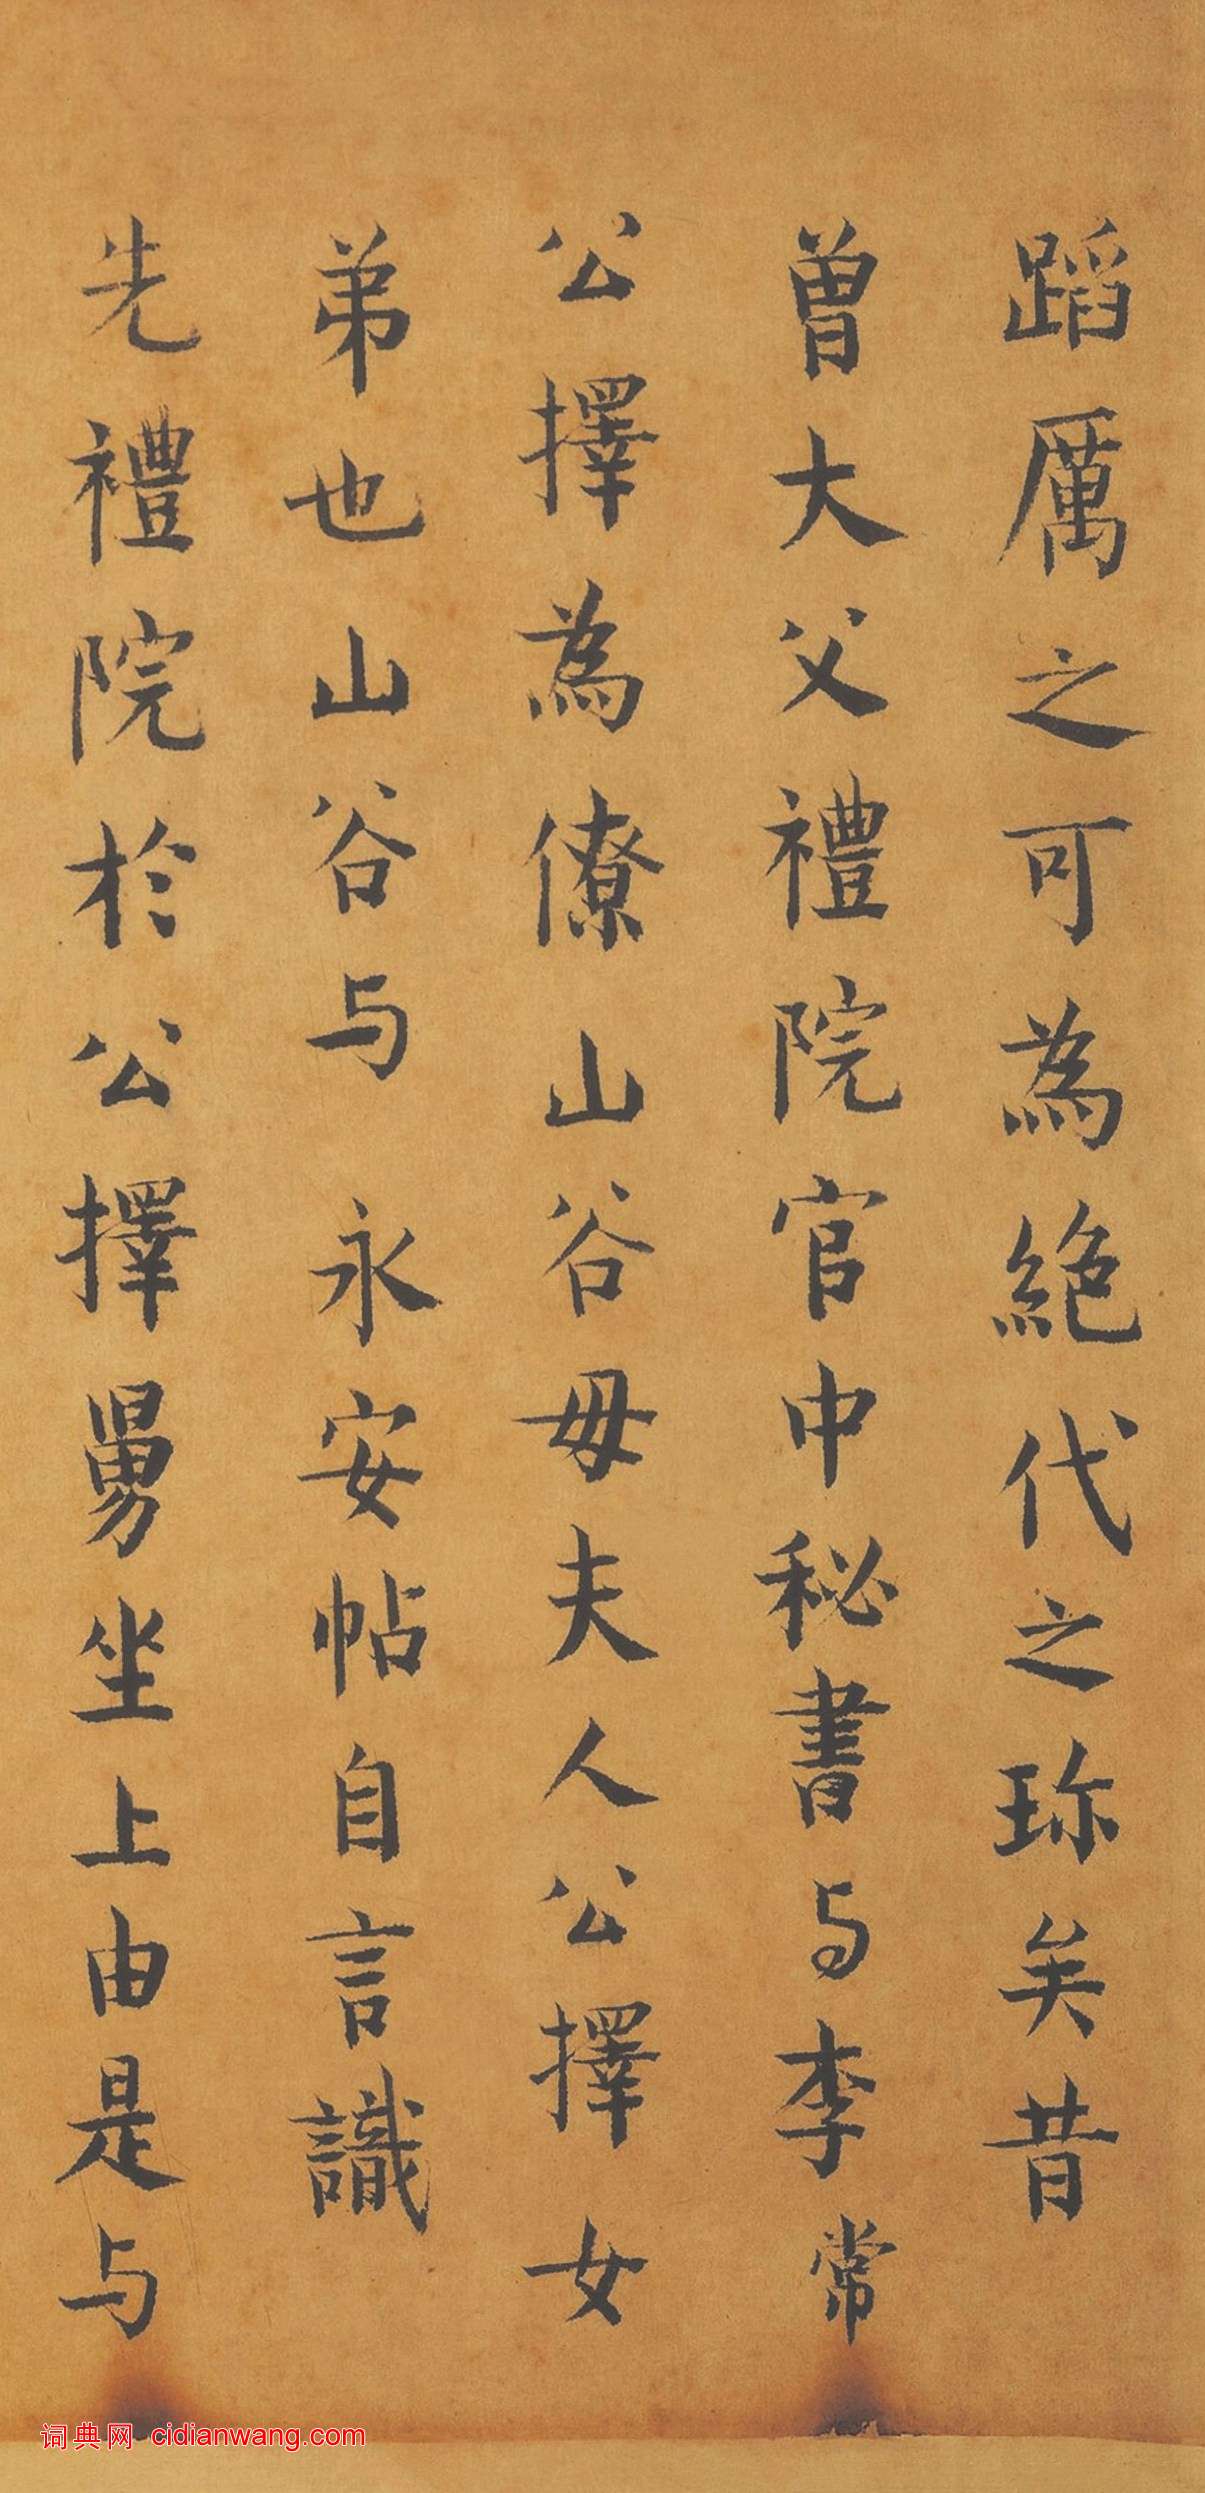 蹈厲之可為絕代之珎矣昔
曾大父禮院官中秘書与李常
公擇為僚山谷母夫人公擇女
弟也山谷与永安帖自言識
先禮院於公擇舅坐上由是与
词典网 cidianwang.com